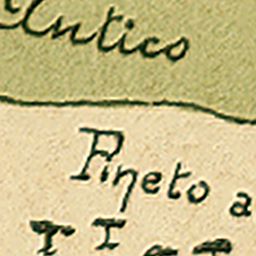 Antico
Pineto a